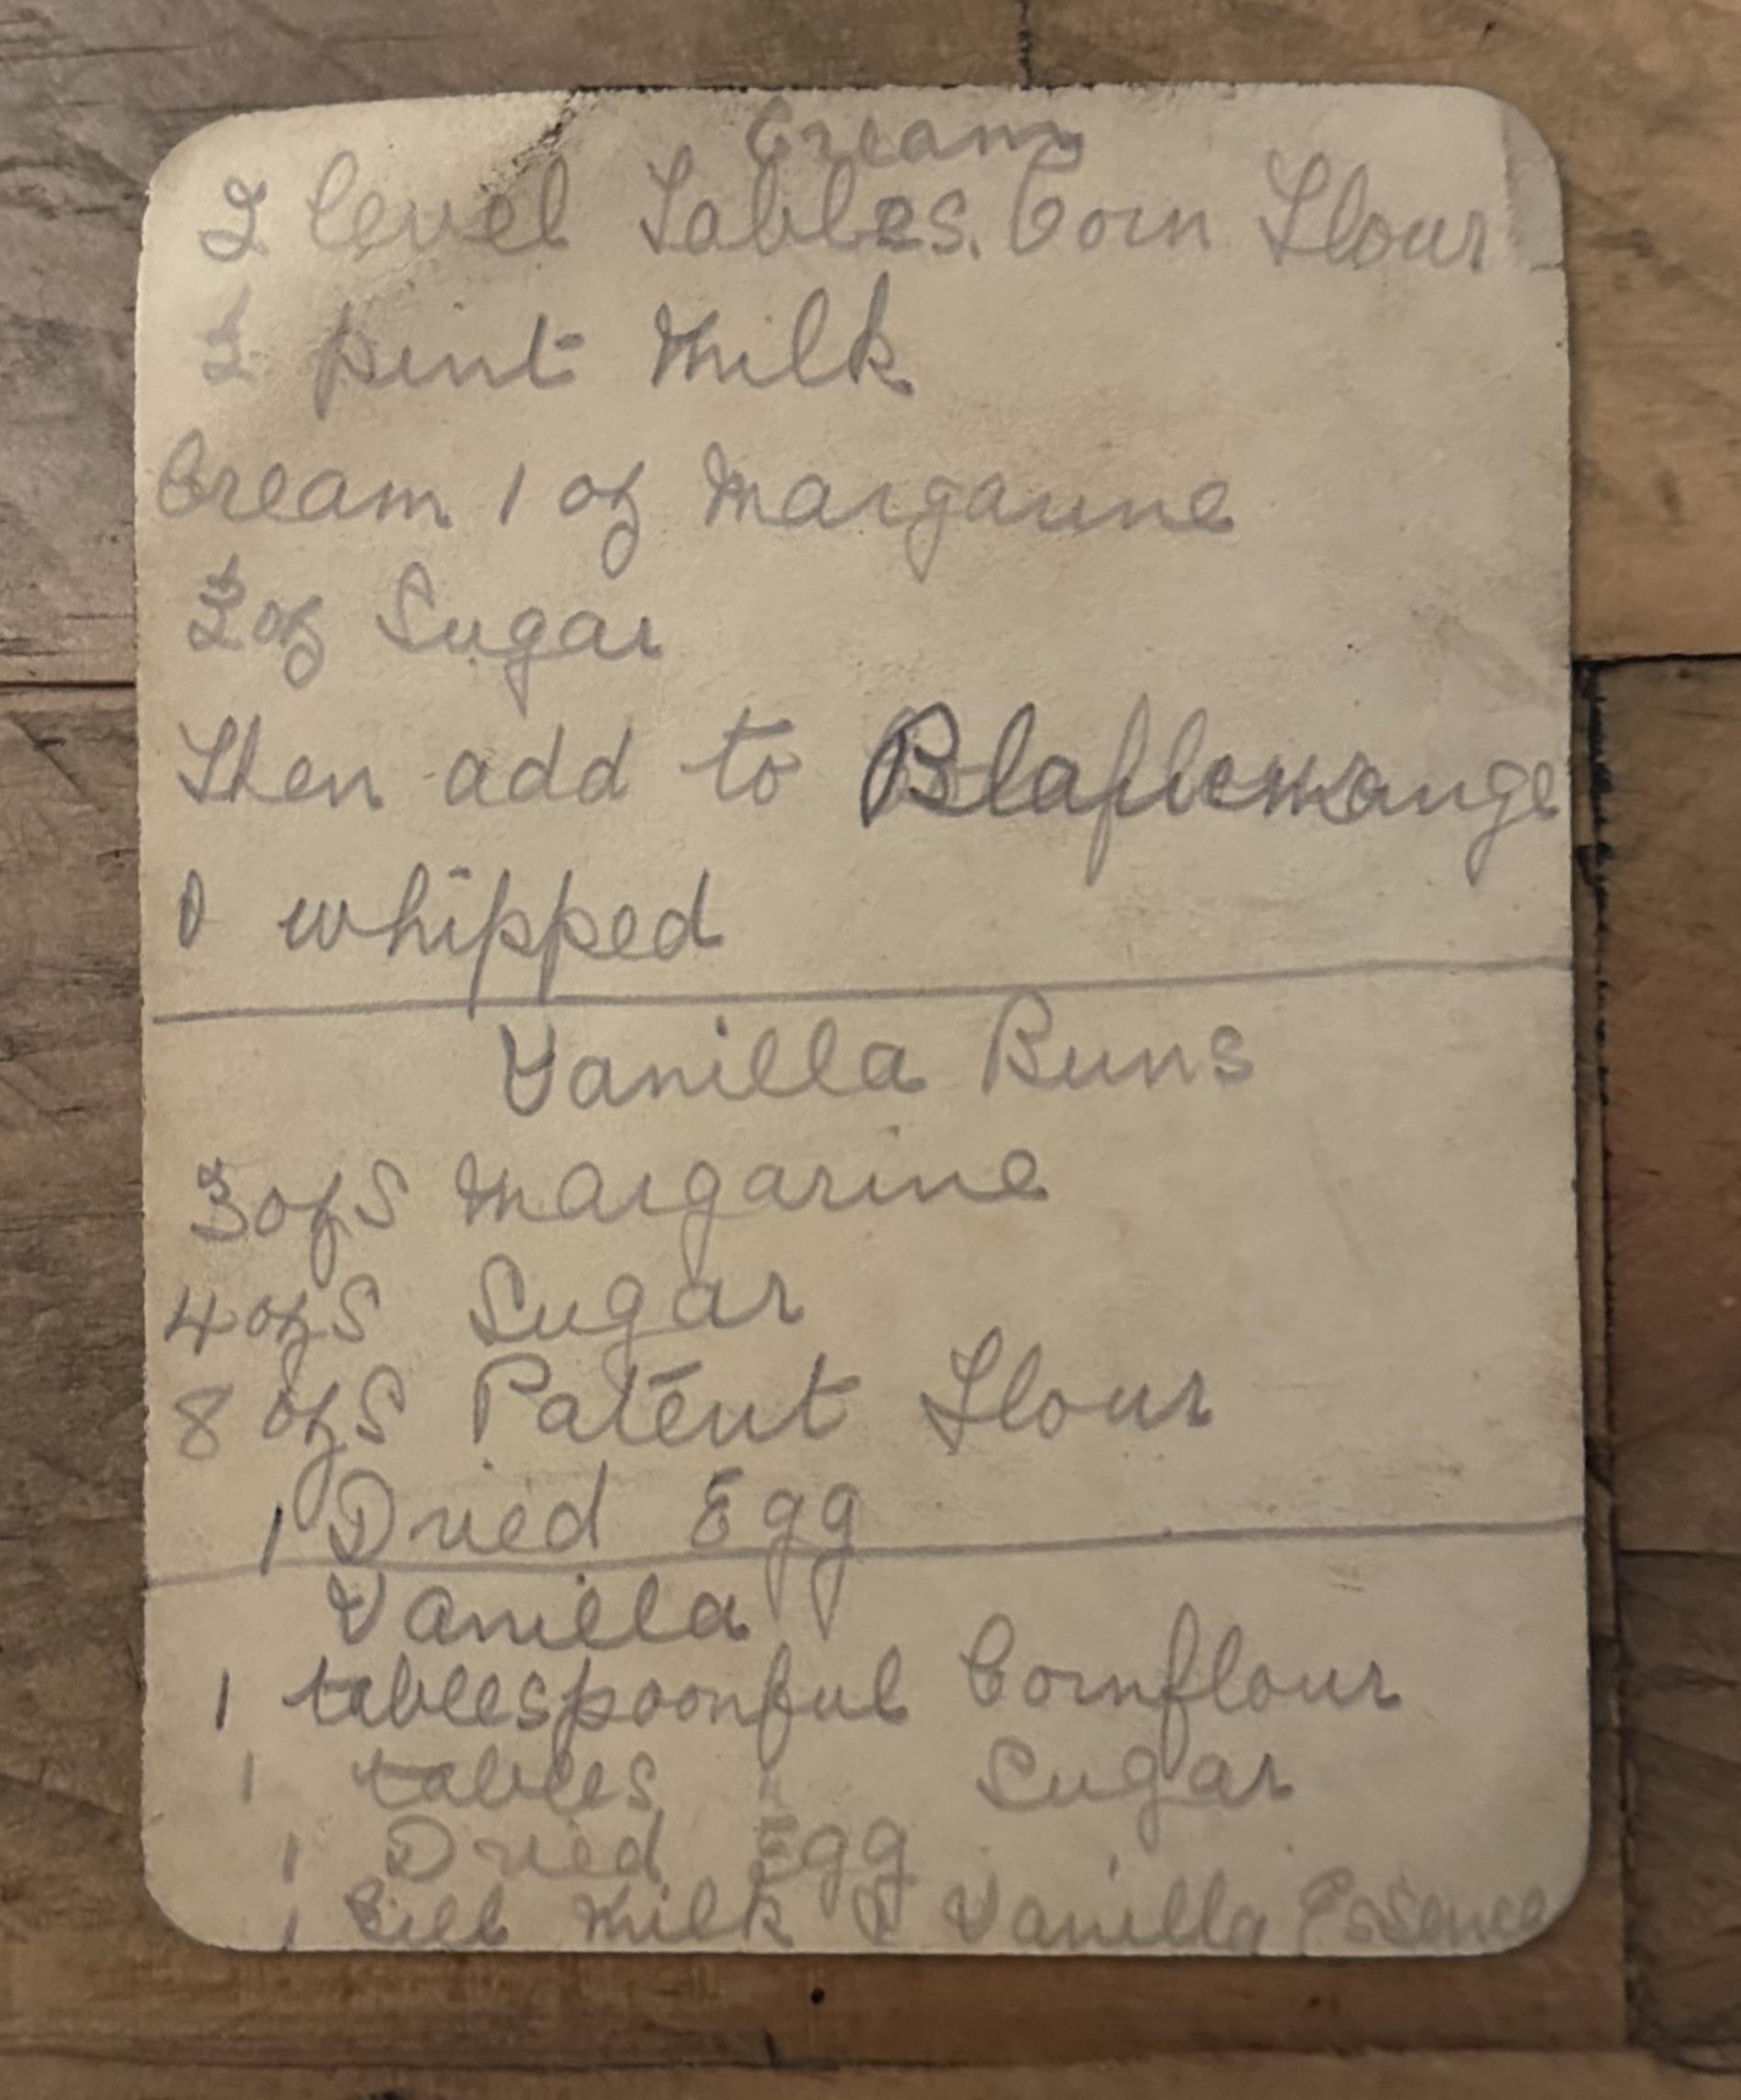 Cream
2 level Tables. Corn Flour
pint Milk
Cream 1 oz Margarine
oz Sugar
Then add to
& whipped
Vanilla Buns
3 ozs Margarine
4 ozs Sugar
8 ozs Patent Flour
1 Dried Egg
Vanilla
1 tablespoonful Cornflour
1 tables " Sugar
1 Dried Egg
1 Gill Milk & Vanilla Essence